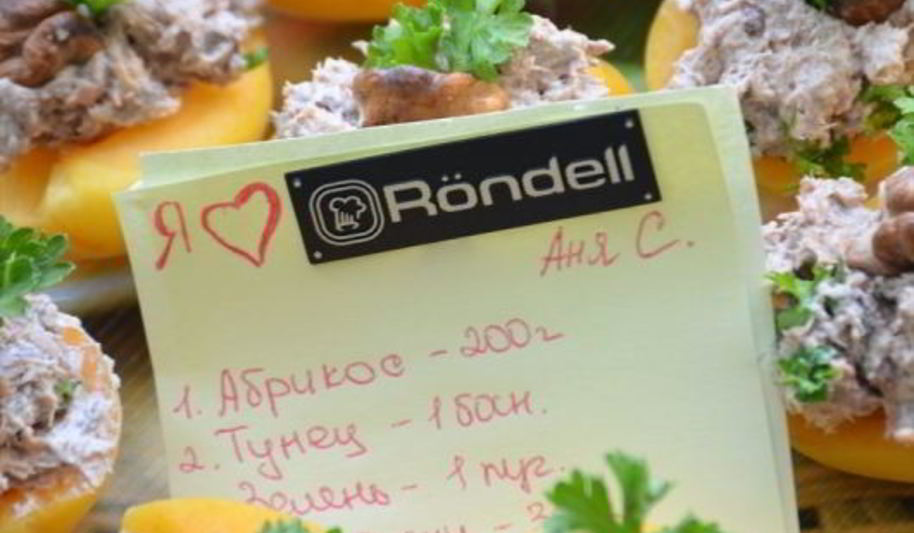 Я ♡ Röndell
Аня С.
1. Абрикос - 200г
2. Тунец - 1 бан.
Зелень - 1 пуг.